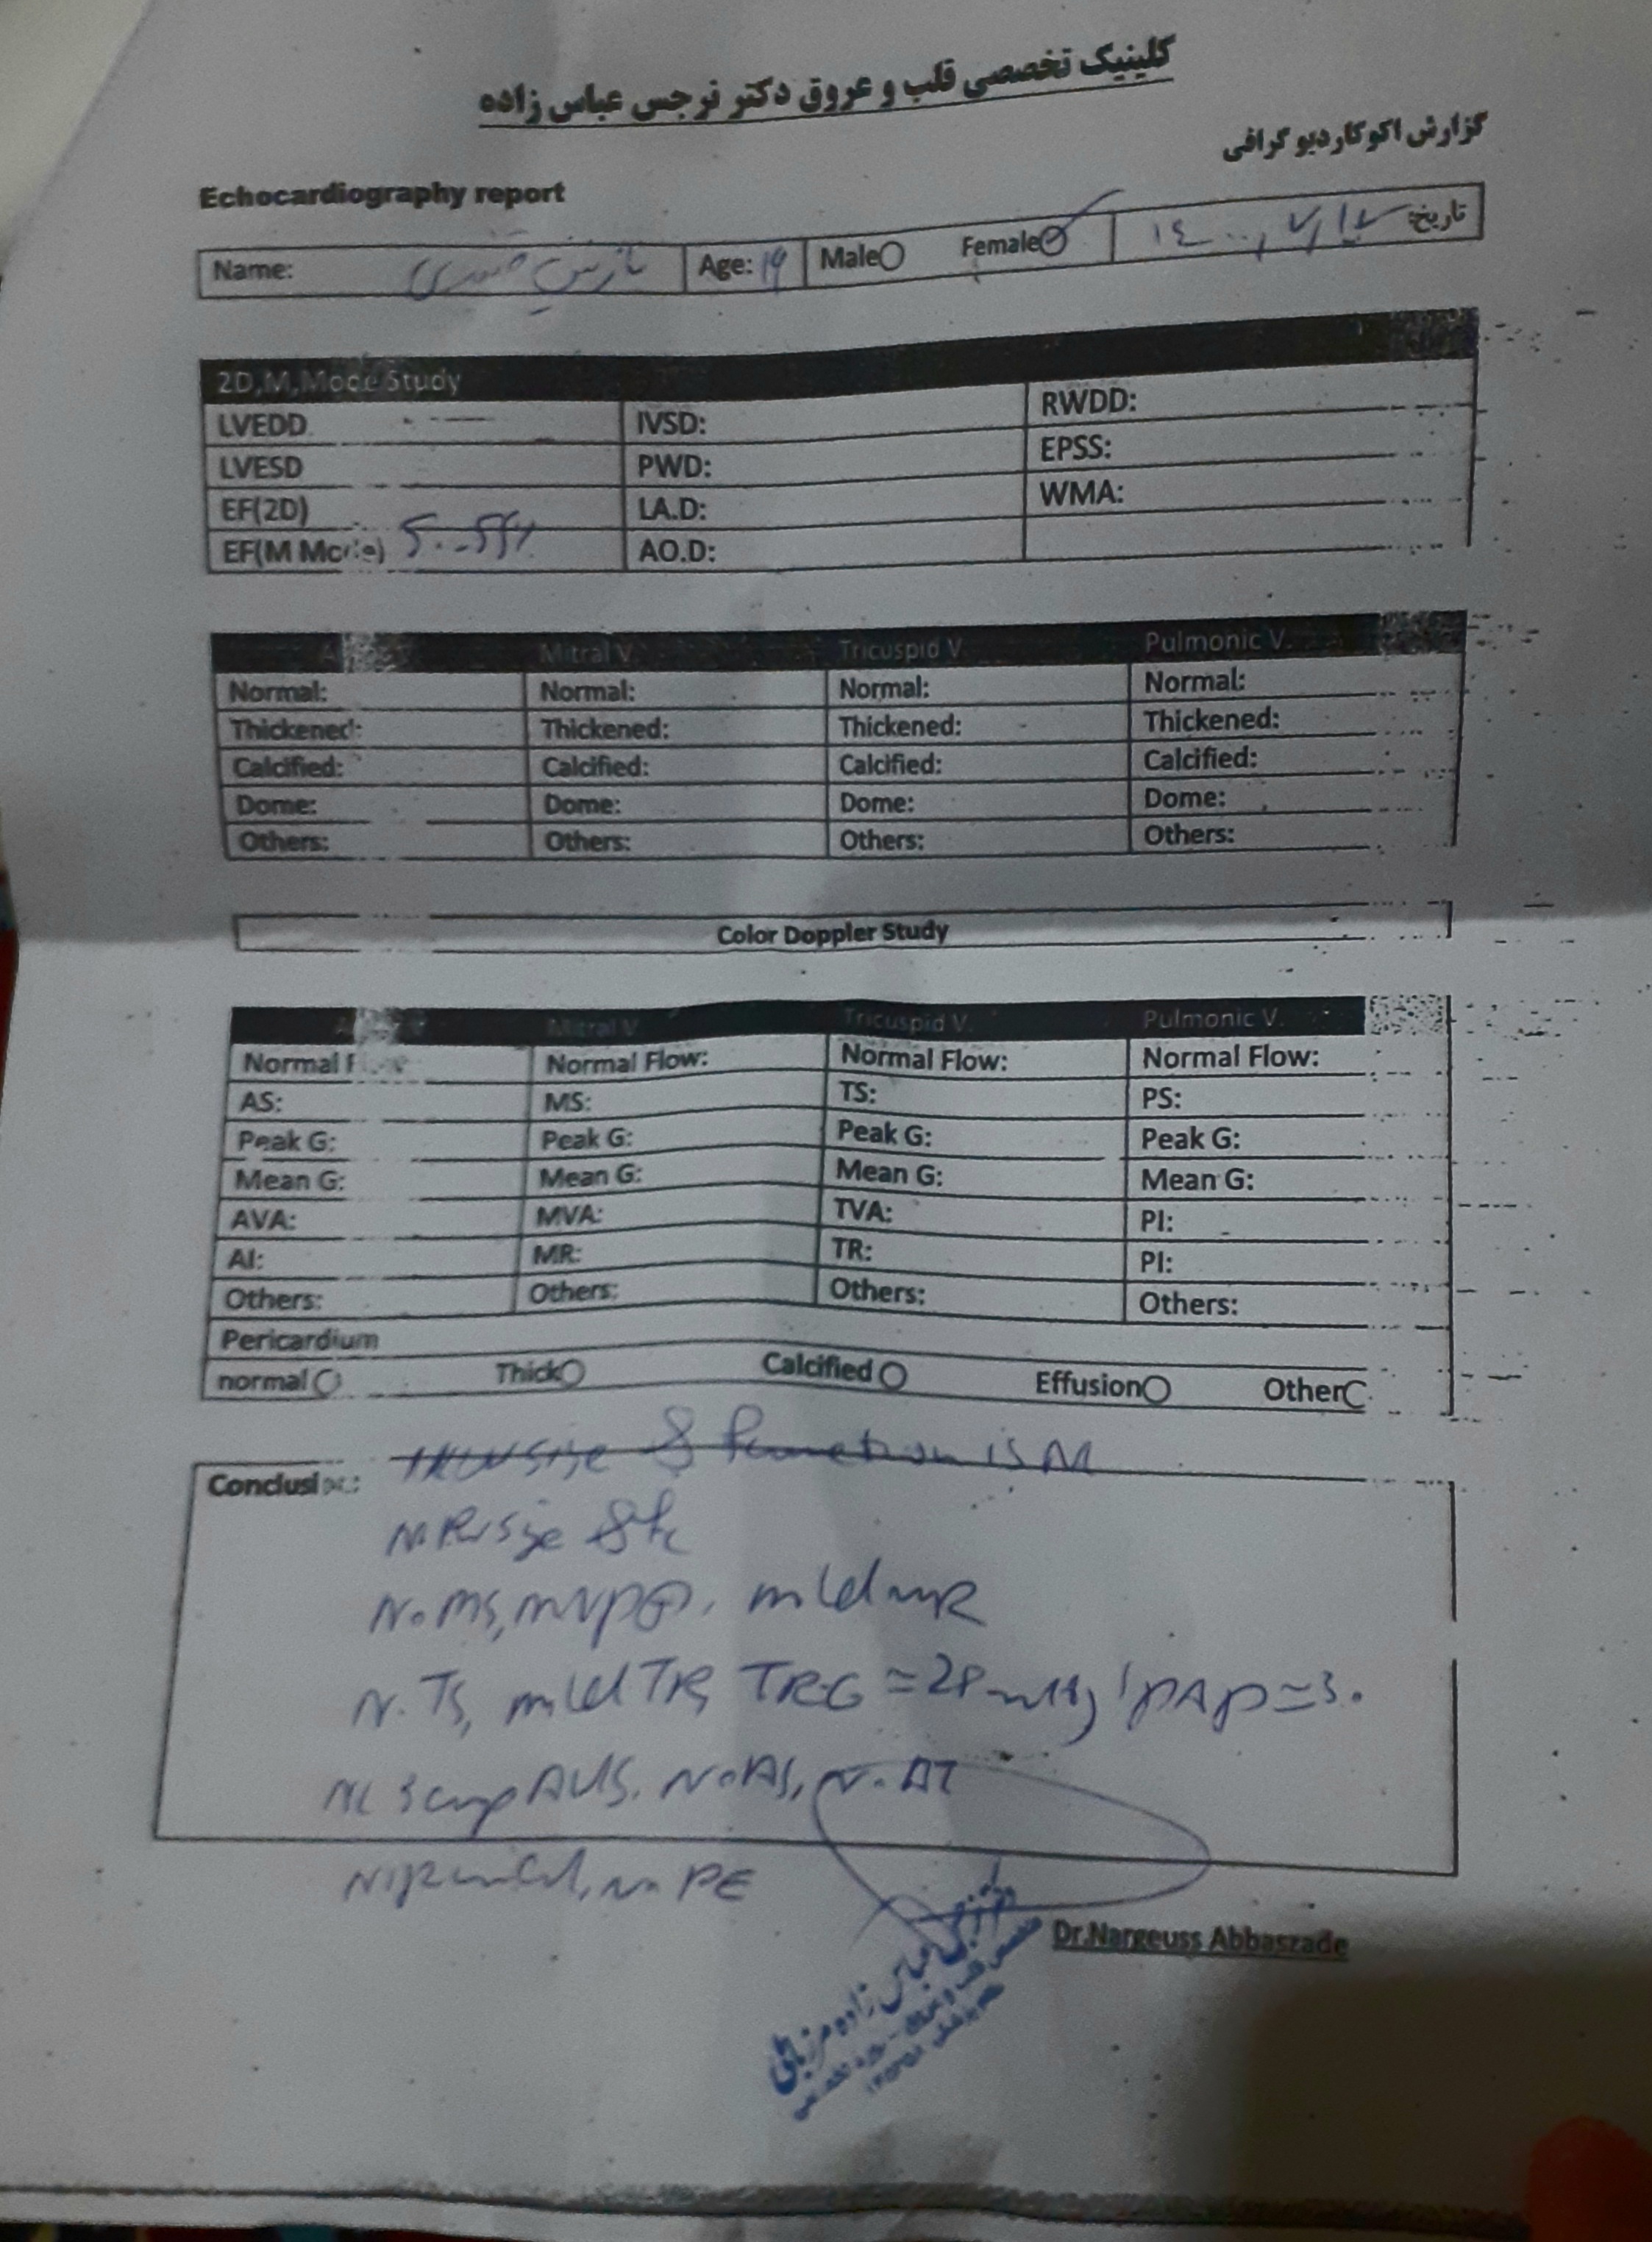 کلینیک تخصصی قلب و عروق دکتر نرجس عباس زاده
گزارش اکوکاردیوگرافی
Echocardiography report
Name: Age: ۱۹ Male Female تاریخ:
2D,M,Mode Study
LVEDD IVSD: RWDD:
LVESD PWD: EPSS:
EF(2D) LA.D: WMA:
EF(M Mode) 50-55% AO.D:
Mitral V Tricuspid V. Pulmonic V.
Normal: Normal: Normal: Normal:
Thickened: Thickened: Thickened: Thickened:
Calcified: Calcified: Calcified: Calcified:
Dome: Dome: Dome: Dome:
Others: Others: Others: Others:
Color Doppler Study
Mitral V Tricuspid V. Pulmonic V.
Normal Normal Flow: Normal Flow: Normal Flow:
AS: MS: TS: PS:
Peak G: Peak G: Peak G: Peak G:
Mean G: Mean G: Mean G: Mean G:
AVA: MVA: TVA: PI:
AI: MR: TR: PI:
Others: Others: Others: Others:
Pericardium
normal Thick Calcified Effusion Other
size & function is
Conclusion:
RV size &
No MS, MVP ⊕, mild MR
No TS, mild TR, TRG = 28 mmHg, PAP = 30
NL 3 cusp AVS, No AS, No AI
No PE
Dr.Nargeuss Abbaszade
دکتر نرجس عباس زاده مرزبالی
متخصص قلب و عروق